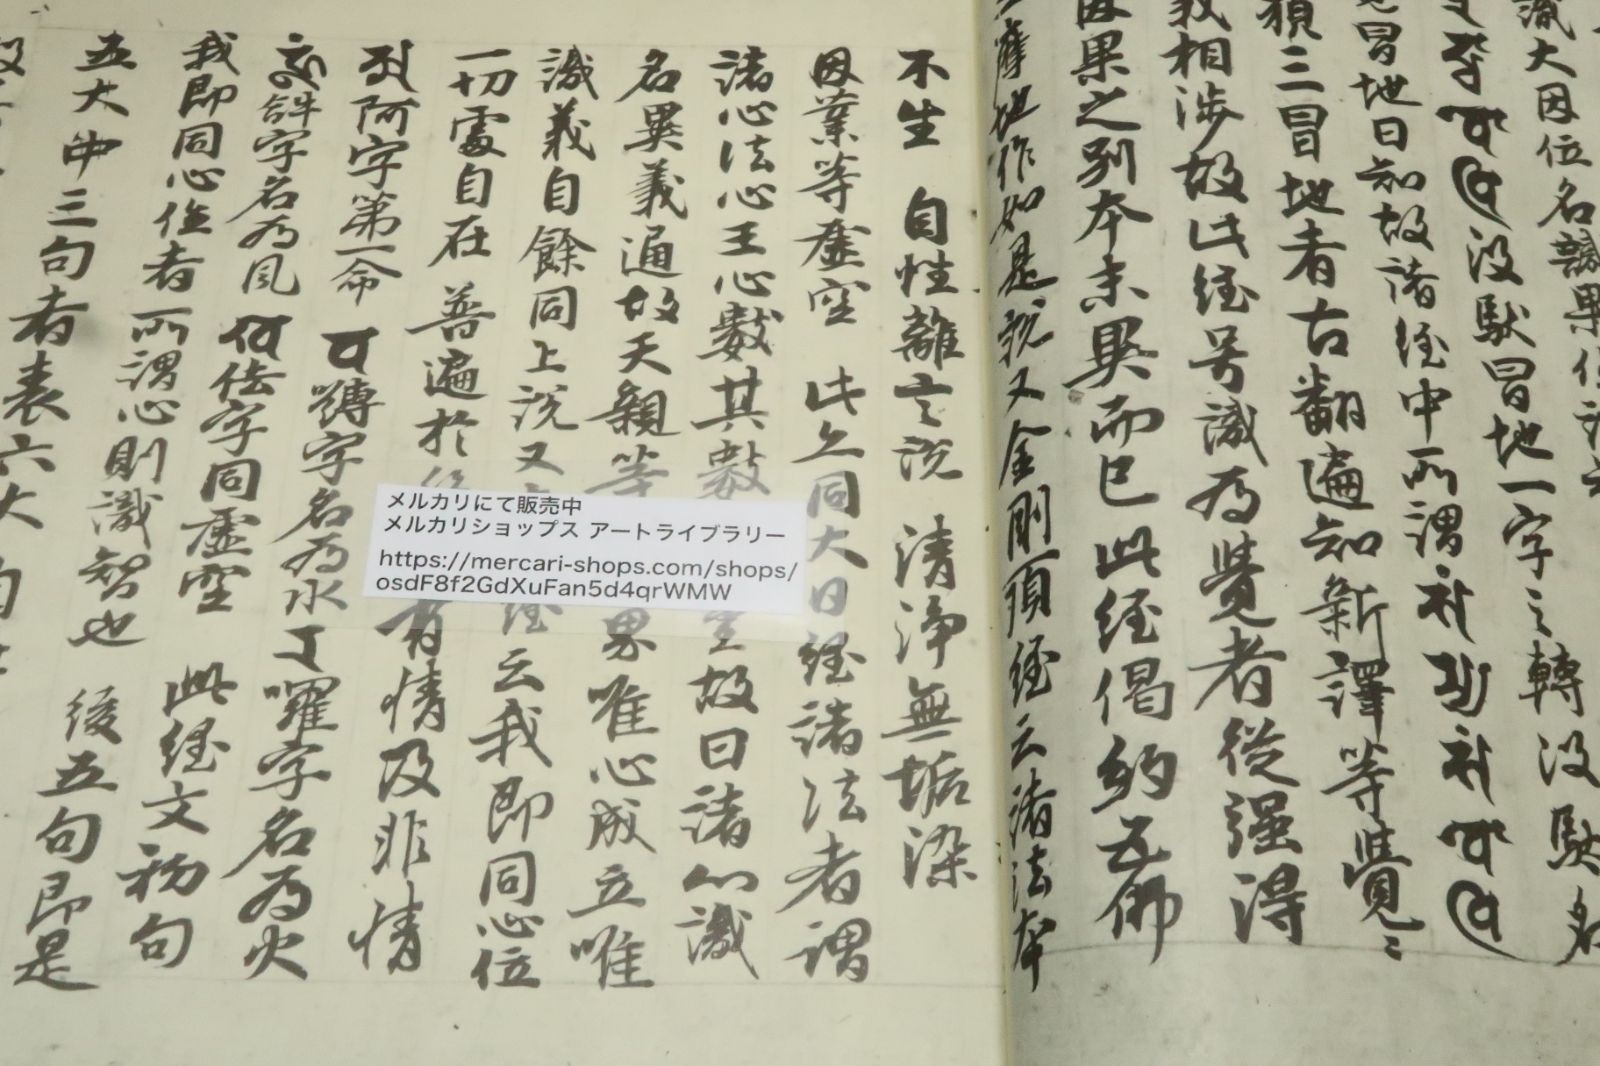 識大因位名識果位
没馱冒地一字之轉没馱名
冒地曰知故諸經中所謂
藐三冒地者古翻遍知新譯等覺々
義相渉故此經号識為覺者從強得
因果之別本末異而已此經偈約五佛
三摩地作如是說又金剛頂經云諸法本
不生 自性離言說 清淨無垢染
因業等虛空 此亦同大日經諸法者謂
諸心法心王心數其數量故曰諸心識
名異義通故天親等界唯心成立唯
識義自餘同上說又經云我即同心位
一切處自在 普遍於有情及非情
阿字第一命 嚩字名為水 囉字名為火
吽字名為風 佉字同虛空 此經文初句
我即同心位者所謂心則識智也 後五句即是
五大中三句者表六大
メルカリにて販売中
メルカリショップス アートライブラリー
https://mercari-shops.com/shops/
osdF8f2GdXuFan5d4qrWMW